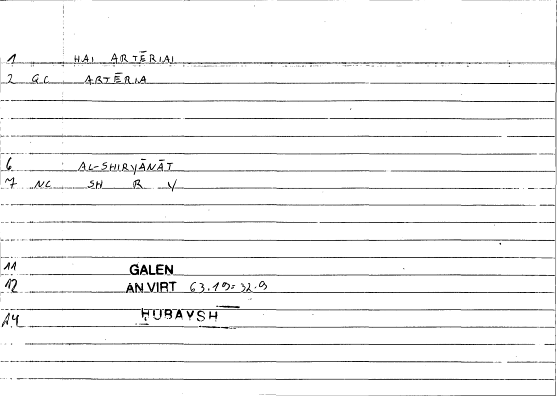 1 HAI ARTĒRIAI
2 GC ARTĒRIA
6 AL-SHIRYĀNĀT
7 NC SH R Y
11 GALEN
12 AN.VIRT 63.19=32.9
14 ḤUBAYSH